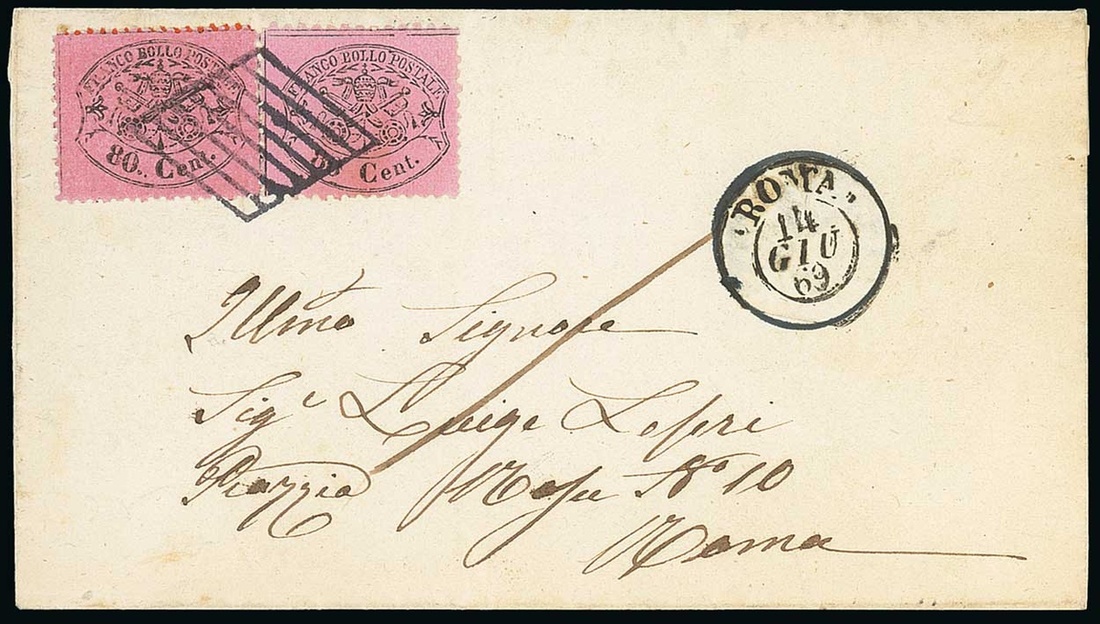 FRANCO BOLLO POSTALE
80.. Cent.
FRANCO BOLLO POSTALE
Cent.
ROMA
14
GIU
69
Illmo Signore
Sigr Luigi Lepri
Piazza Rosa No 10
Roma